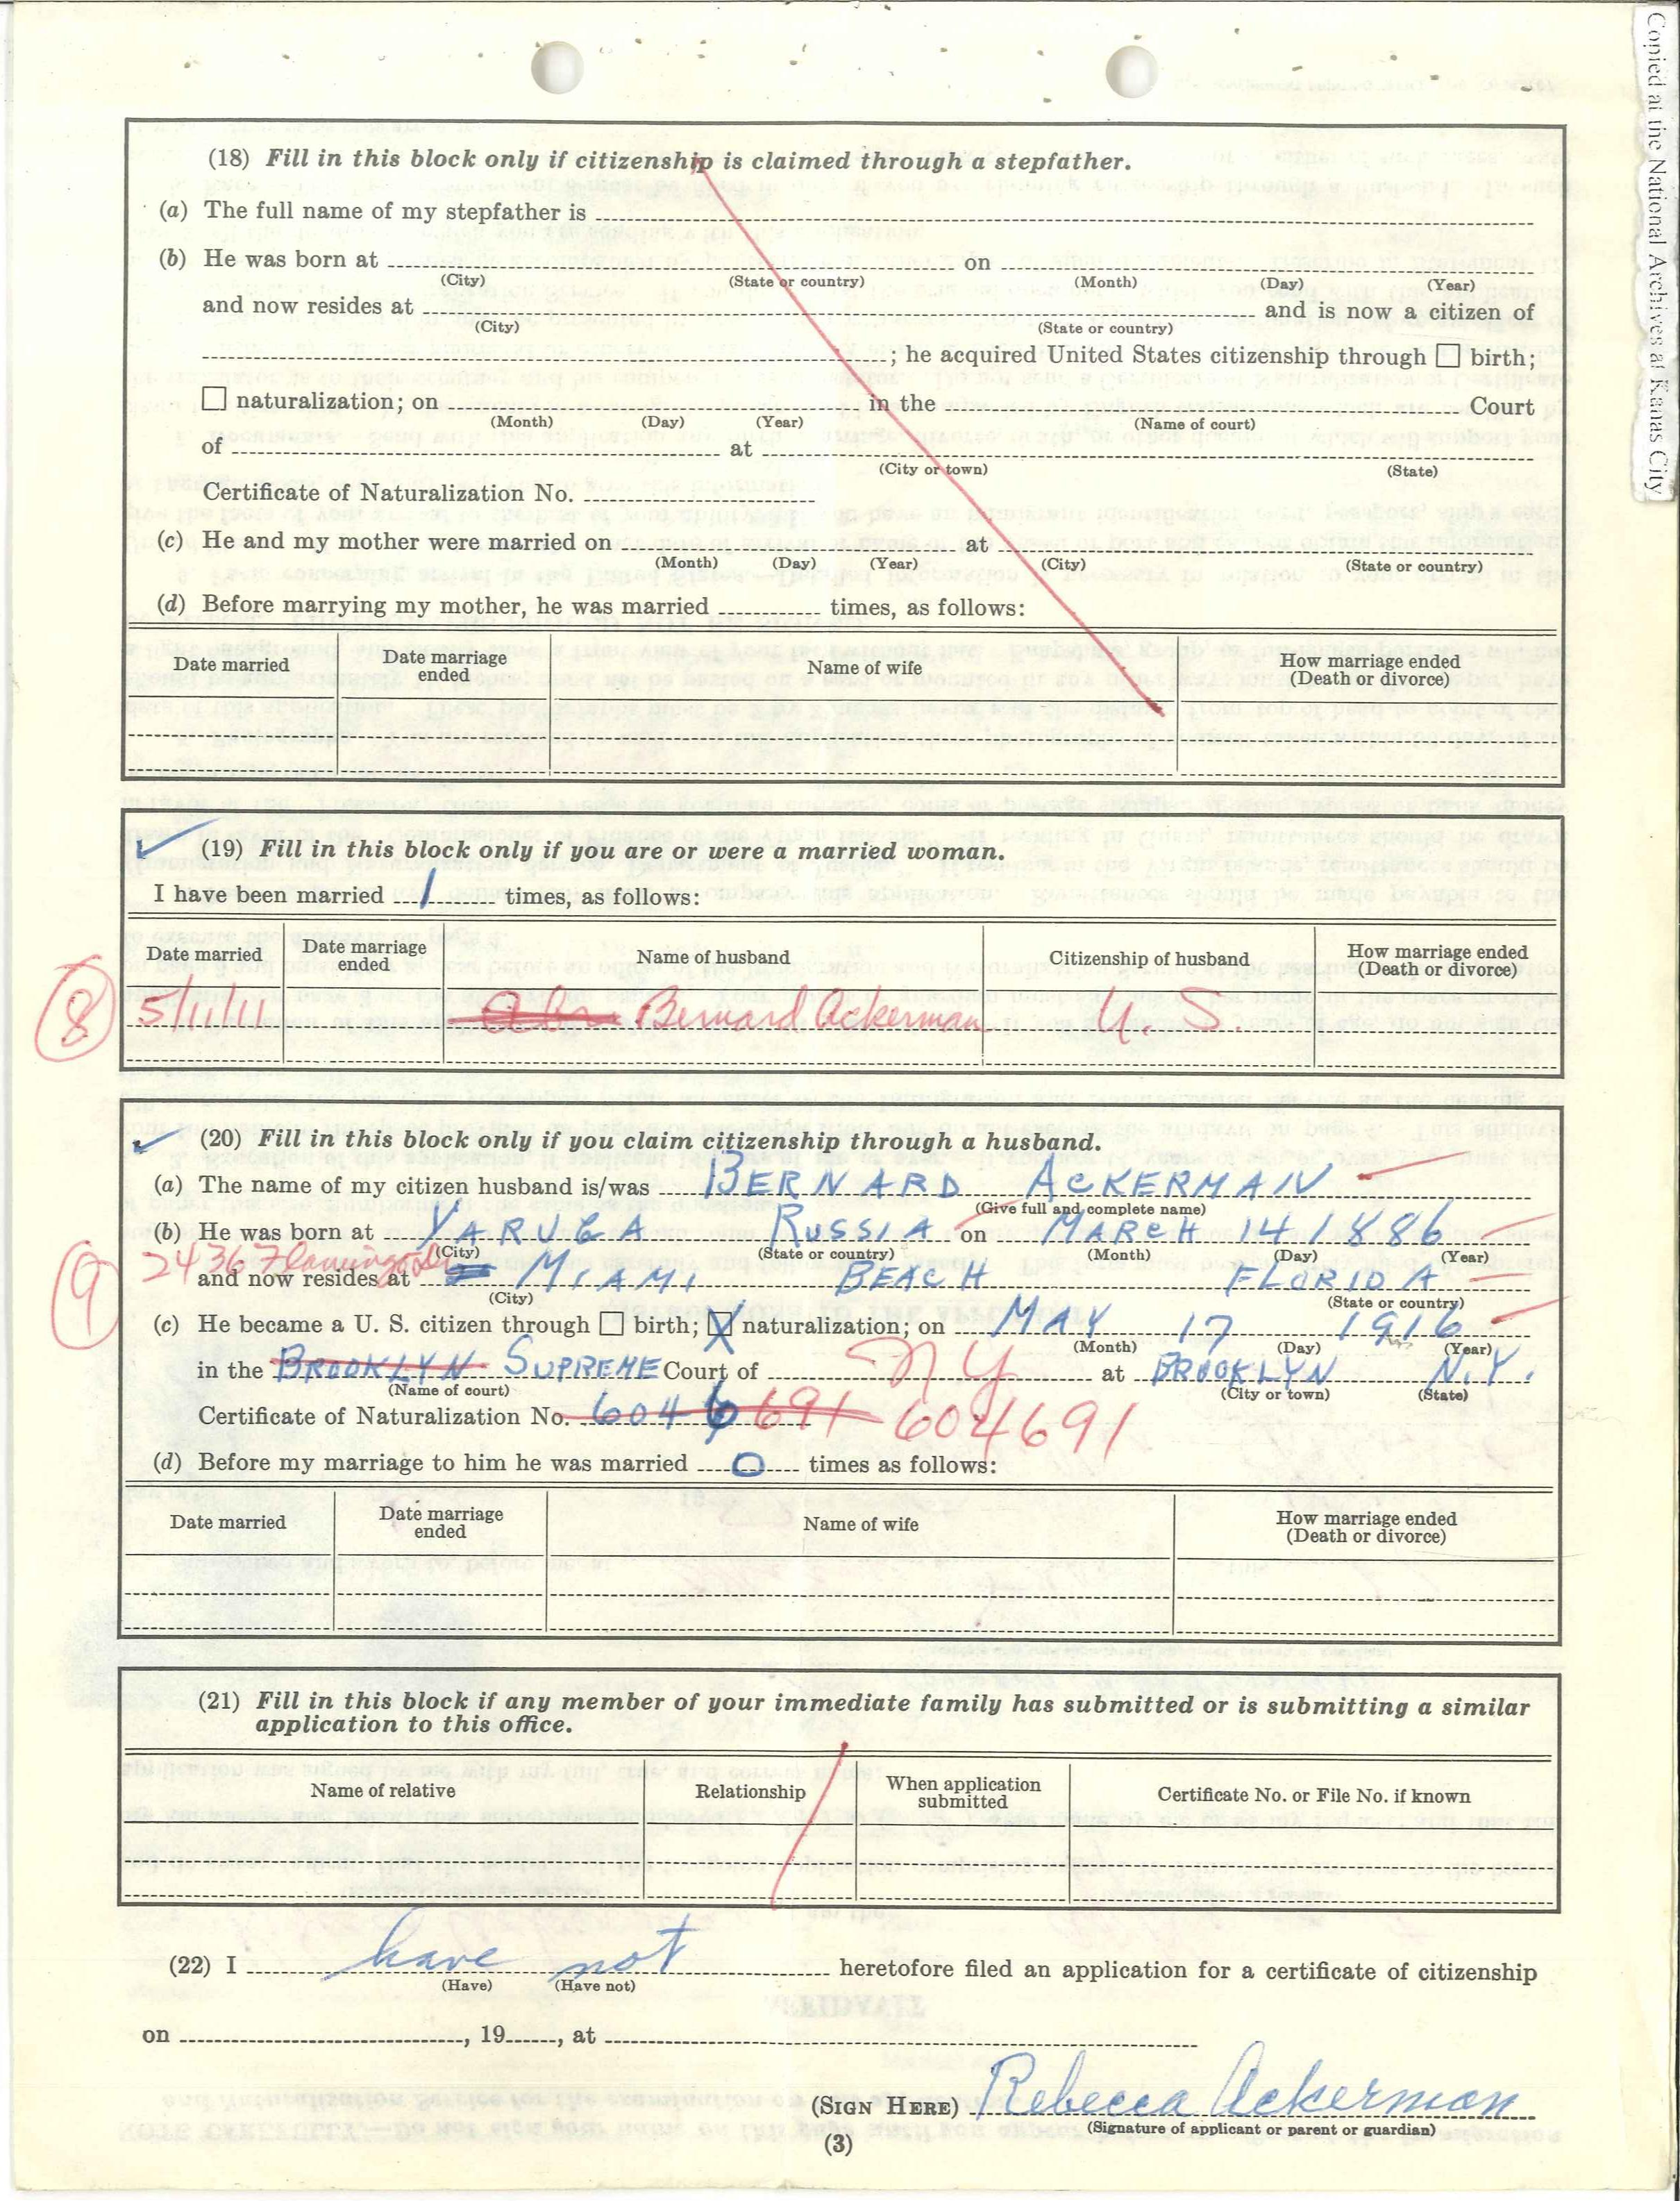 Copied at the National Archives at Kansas City
(18) Fill in this block only if citizenship is claimed through a stepfather.
(a) The full name of my stepfather is
(b) He was born at on
(City) (State or country) (Month) (Day) (Year)
and now resides at and is now a citizen of
(City) (State or country)
; he acquired United States citizenship through ☐ birth;
☐ naturalization; on in the Court
(Month) (Day) (Year) (Name of court)
of at
(City or town) (State)
Certificate of Naturalization No.
(c) He and my mother were married on at
(Month) (Day) (Year) (City) (State or country)
(d) Before marrying my mother, he was married times, as follows:
Date married Date marriage ended Name of wife How marriage ended (Death or divorce)
(19) Fill in this block only if you are or were a married woman.
I have been married 1 times, as follows:
Date married Date marriage ended Name of husband Citizenship of husband How marriage ended (Death or divorce)
8 5/1/11 Bernard Ackerman U. S.
(20) Fill in this block only if you claim citizenship through a husband.
(a) The name of my citizen husband is/was BERNARD ACKERMAN
(Give full and complete name)
(b) He was born at YARUGA RUSSIA on MARCH 14 1886
(City) (State or country) (Month) (Day) (Year)
9 2436 Flamingo Dr
and now resides at MIAMI BEACH FLORIDA
(City) (State or country)
(c) He became a U. S. citizen through ☐ birth; ☒ naturalization; on MAY 17 1916
(Month) (Day) (Year)
in the BROOKLYN SUPREME Court of N Y at BROOKLYN N.Y.
(Name of court) (City or town) (State)
Certificate of Naturalization No. 6046 691 604691
(d) Before my marriage to him he was married 0 times as follows:
Date married Date marriage ended Name of wife How marriage ended (Death or divorce)
(21) Fill in this block if any member of your immediate family has submitted or is submitting a similar
application to this office.
Name of relative Relationship When application submitted Certificate No. or File No. if known
(22) I have not heretofore filed an application for a certificate of citizenship
(Have) (Have not)
on , 19 , at
(SIGN HERE) Rebecca Ackerman
(Signature of applicant or parent or guardian)
(3)